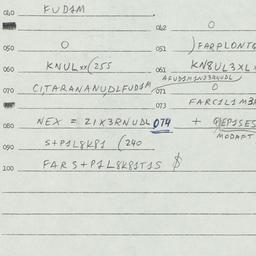 040 FUDAM
042 0
050 0
051 )FARPLONT
060 KNULxx(255
061 KN8UL3XL
070 CITARANANUDLFUDAM
071 0
073 FARC1L1M3
080 NEX = Z1X3RNUDL 074 + @EP1SES
MODAPT
090 S+P1L8K81 (240
100 FARS+P1L8K81T1S $